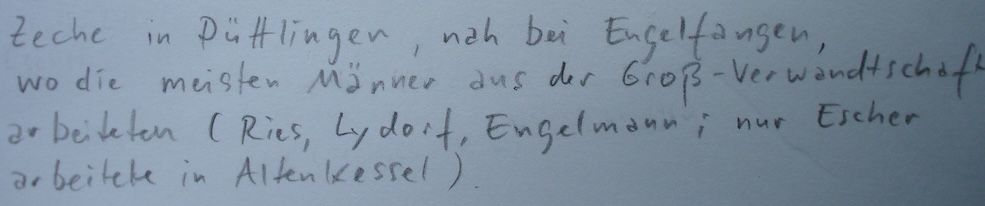 Zeche in Püttlingen, nah bei Engelfangen,
wo die meisten Männer aus der Groß-Verwandtschaft
arbeiteten (Ries, Lydorf, Engelmann; nur Escher
arbeitete in Altenkessel).